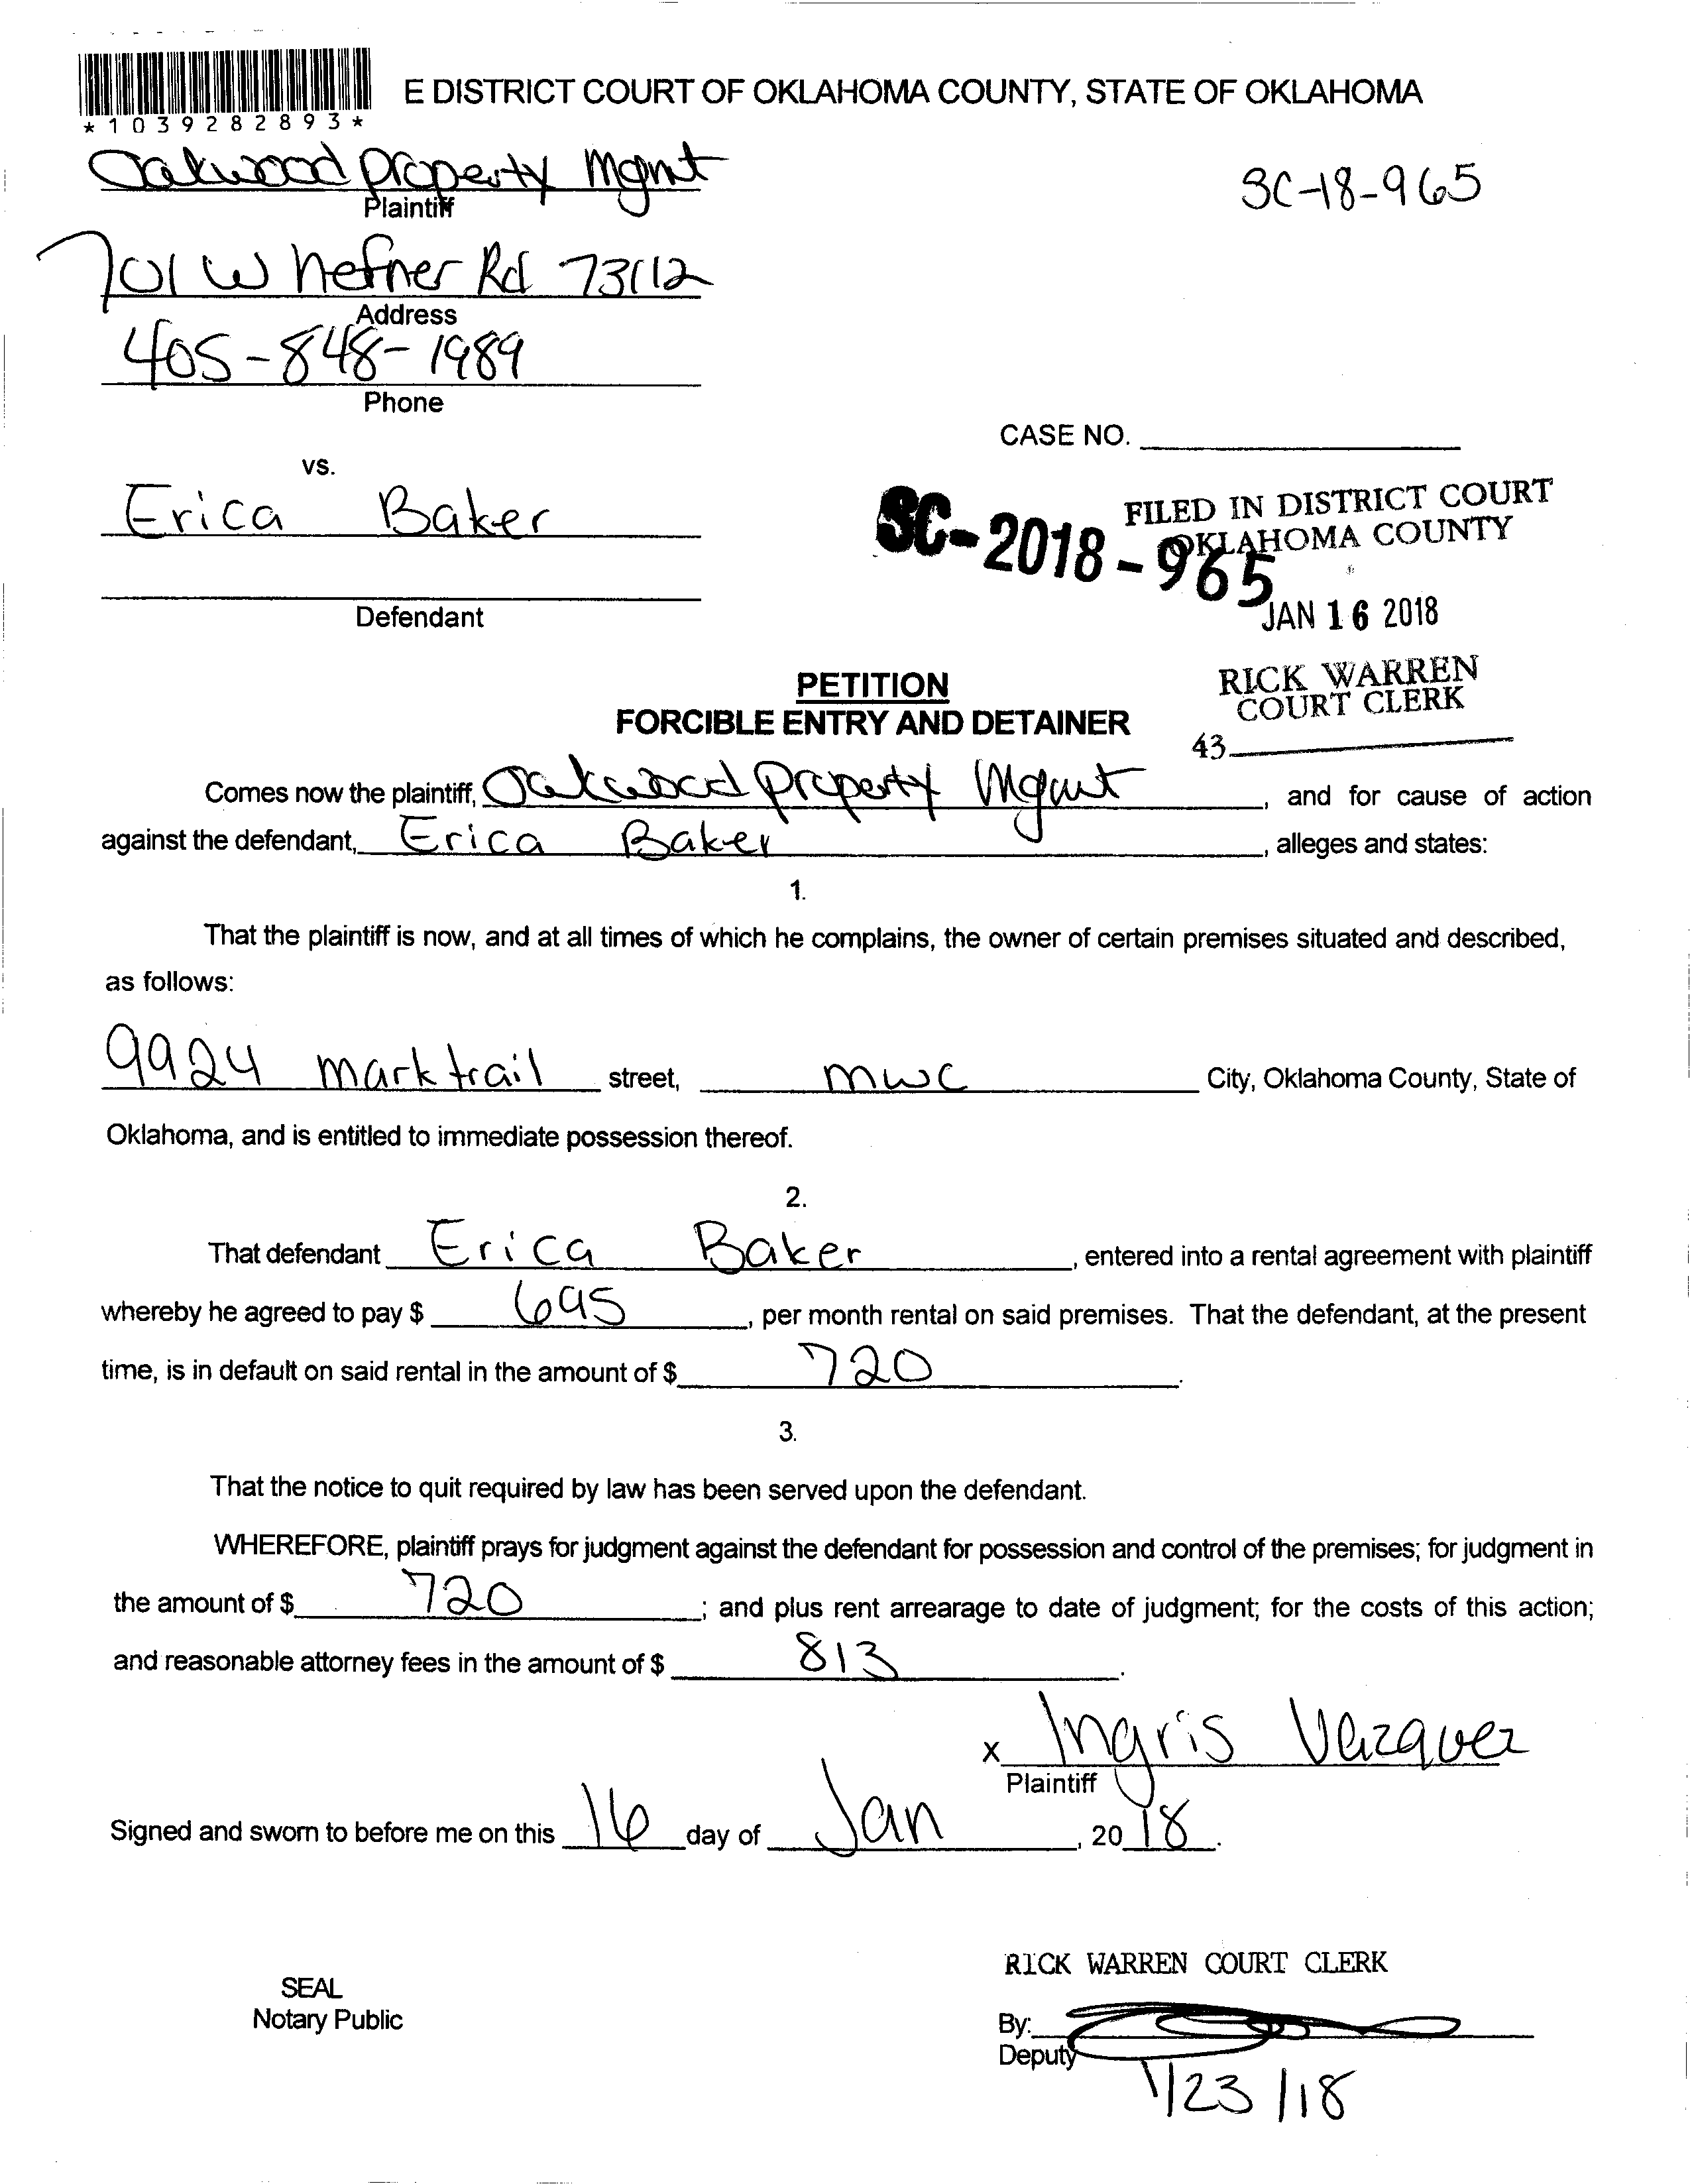 E DISTRICT COURT OF OKLAHOMA COUNTY, STATE OF OKLAHOMA
*1039282893*
Oakwood Property Mgmt
Plaintiff
SC-18-965
701 W hefner Rd 73112
Address
405-848-1989
Phone
CASE NO.
vs.
Erica Baker
Defendant
SC-2018-965
FILED IN DISTRICT COURT
OKLAHOMA COUNTY
JAN 16 2018
RICK WARREN
COURT CLERK
43
PETITION
FORCIBLE ENTRY AND DETAINER
Comes now the plaintiff, Oakwood Property Mgmt, and for cause of action
against the defendant, Erica Baker, alleges and states:
1.
That the plaintiff is now, and at all times of which he complains, the owner of certain premises situated and described,
as follows:
9924 marktrail street, mwc City, Oklahoma County, State of
Oklahoma, and is entitled to immediate possession thereof.
2.
That defendant Erica Baker, entered into a rental agreement with plaintiff
whereby he agreed to pay $ 695, per month rental on said premises. That the defendant, at the present
time, is in default on said rental in the amount of $ 720.
3.
That the notice to quit required by law has been served upon the defendant.
WHEREFORE, plaintiff prays for judgment against the defendant for possession and control of the premises; for judgment in
the amount of $ 720; and plus rent arrearage to date of judgment; for the costs of this action;
and reasonable attorney fees in the amount of $ 813.
x Ingris Vazquez
Plaintiff
Signed and sworn to before me on this 16 day of Jan, 2018.
RICK WARREN COURT CLERK
SEAL
Notary Public
By:
Deputy
1/23/18